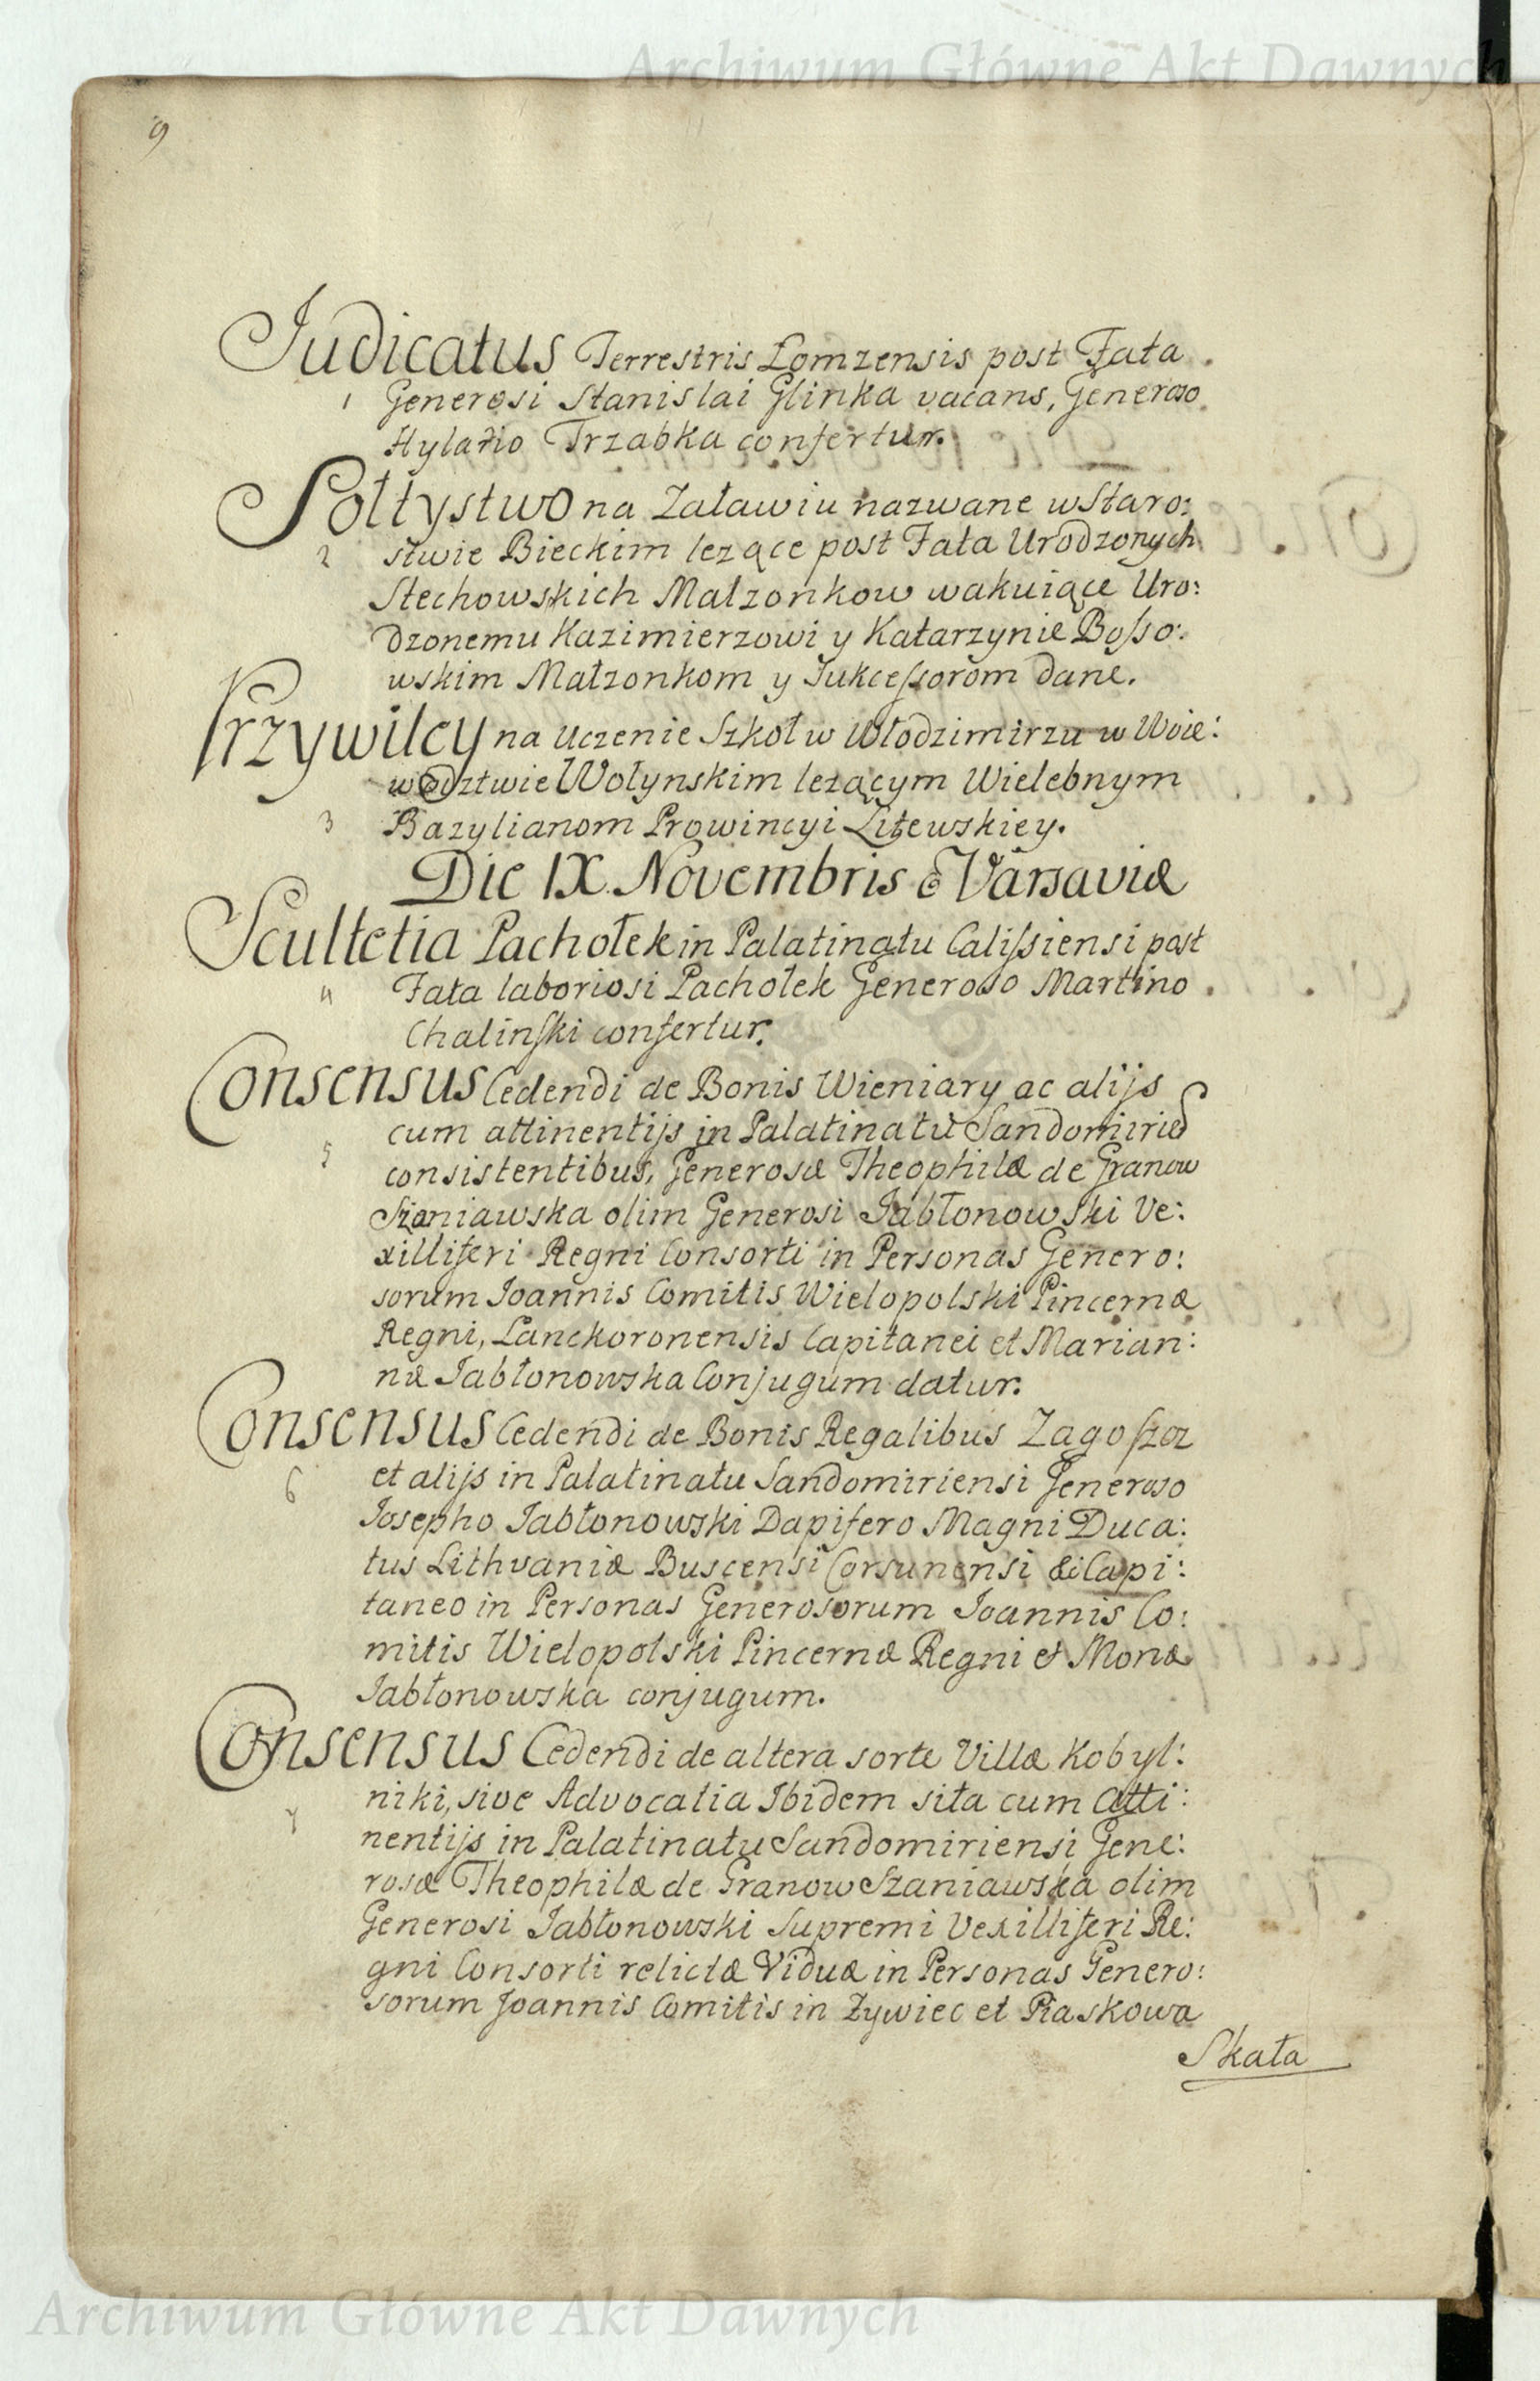 Archiwum Główne Akt Dawnych
9
Judicatus Terrestris Lomzensis post Fata
1 Generosi Stanislai Glinka vacans, Generoso
Hylario Trzabka confertur.
Sołtystwo na Załawiu nazwane w Staro:
2 stwie Bieckim leząće post Fata Urodzonych
Stechowskich Małzonkow wakuiące Uro:
dzonemu Kazimierzowi y Katarzynie Bosso:
wskim Małzonkom y Sukcessorom dane.
Przywiley na Uczenie Szkoł w Włodzimirzu w Woie:
wodztwie Wołynskim lezącym Wielebnym
3 Bazylianom Prowincyi Litewskiey.
Die IX Novembris Varsaviæ
Scultetia Pachołek in Palatinatu Calissiensi post
4 Fata laboriosi Pachołek Generoso Martino
Chalinski confertur.
Consensus Cedendi de Bonis Wieniary ac alijs
cum attinentijs in Palatinatu Sandomirien
5 consistentibus, Generosæ Theophilæ de Granow
Szaniawska olim Generosi Jabłonowski Ve:
xilliferi Regni Consorti in Personas Genero:
sorum Joannis Comitis Wielopolski Pincernæ
Regni, Lanckoronensis Capitanei et Marian:
næ Jabłonowska Conjugum datur.
Consensus Cedendi de Bonis Regalibus Zagoszcz
6 et alijs in Palatinatu Sandomiriensi Generoso
Josepho Jabłonowski Dapifero Magni Duca:
tus Lithvaniæ Buscensi Corsunensi &c Capi:
taneo in Personas Generosorum Joannis Co:
mitis Wielopolski Pincernæ Regni et Monæ
Jabłonowska conjugum.
Consensus Cedendi de altera sorte Villæ Kobyl:
niki, sive Advocatia Ibidem sita cum Atti:
7 nentijs in Palatinatu Sandomiriensi Gene:
rosæ Theophilæ de Granow Szaniawska olim
Generosi Jabłonowski Supremi Vexilliferi Re:
gni Consorti relictæ Viduæ in Personas Genero:
sorum Joannis Comitis in Zywiec et Piaskowa
Skała
Archiwum Główne Akt Dawnych